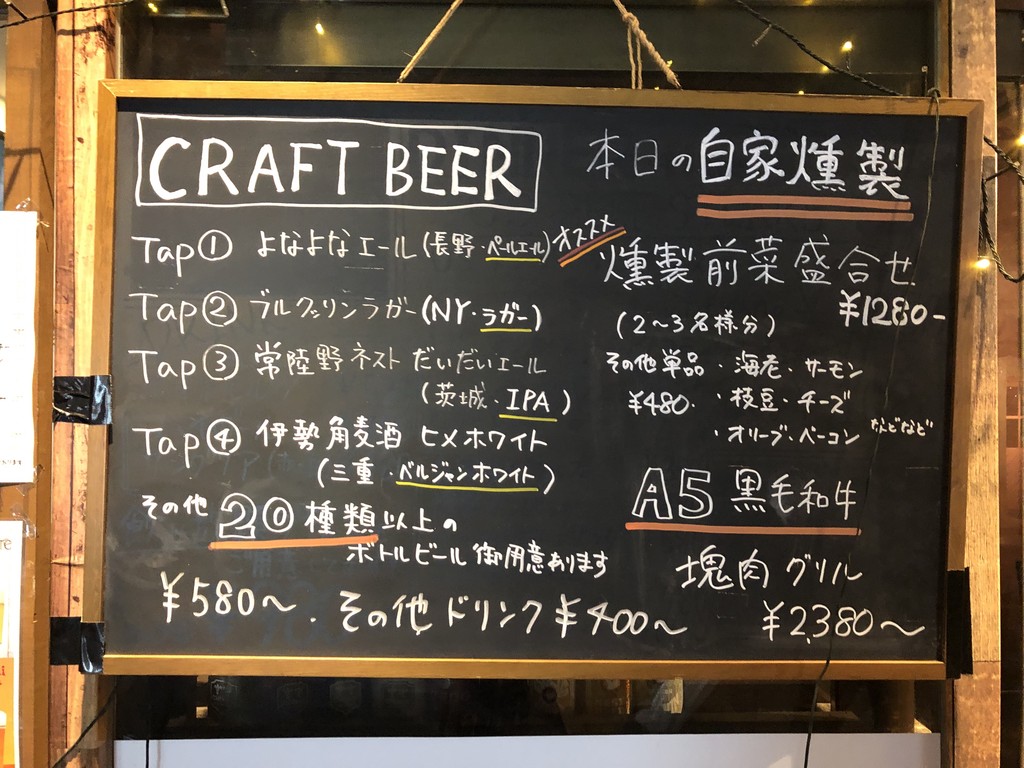 CRAFT BEER
Tap① よなよなエール(長野・ペールエール) オススメ
Tap② ブルックリンラガー(NY・ラガー)
Tap③ 常陸野ネスト だいだいエール
(茨城・IPA)
Tap④ 伊勢角麦酒 ヒメホワイト
(三重・ベルジャンホワイト)
その他 20種類以上の
ボトルビール御用意あります
¥580~. その他ドリンク¥400~
本日の自家燻製
燻製前菜盛合せ
¥1280-
(2~3名様分)
その他単品・海老・サーモン
¥480.・枝豆・チーズ
・オリーブ・ベーコン などなど
A5黒毛和牛
塊肉グリル
¥2,380~